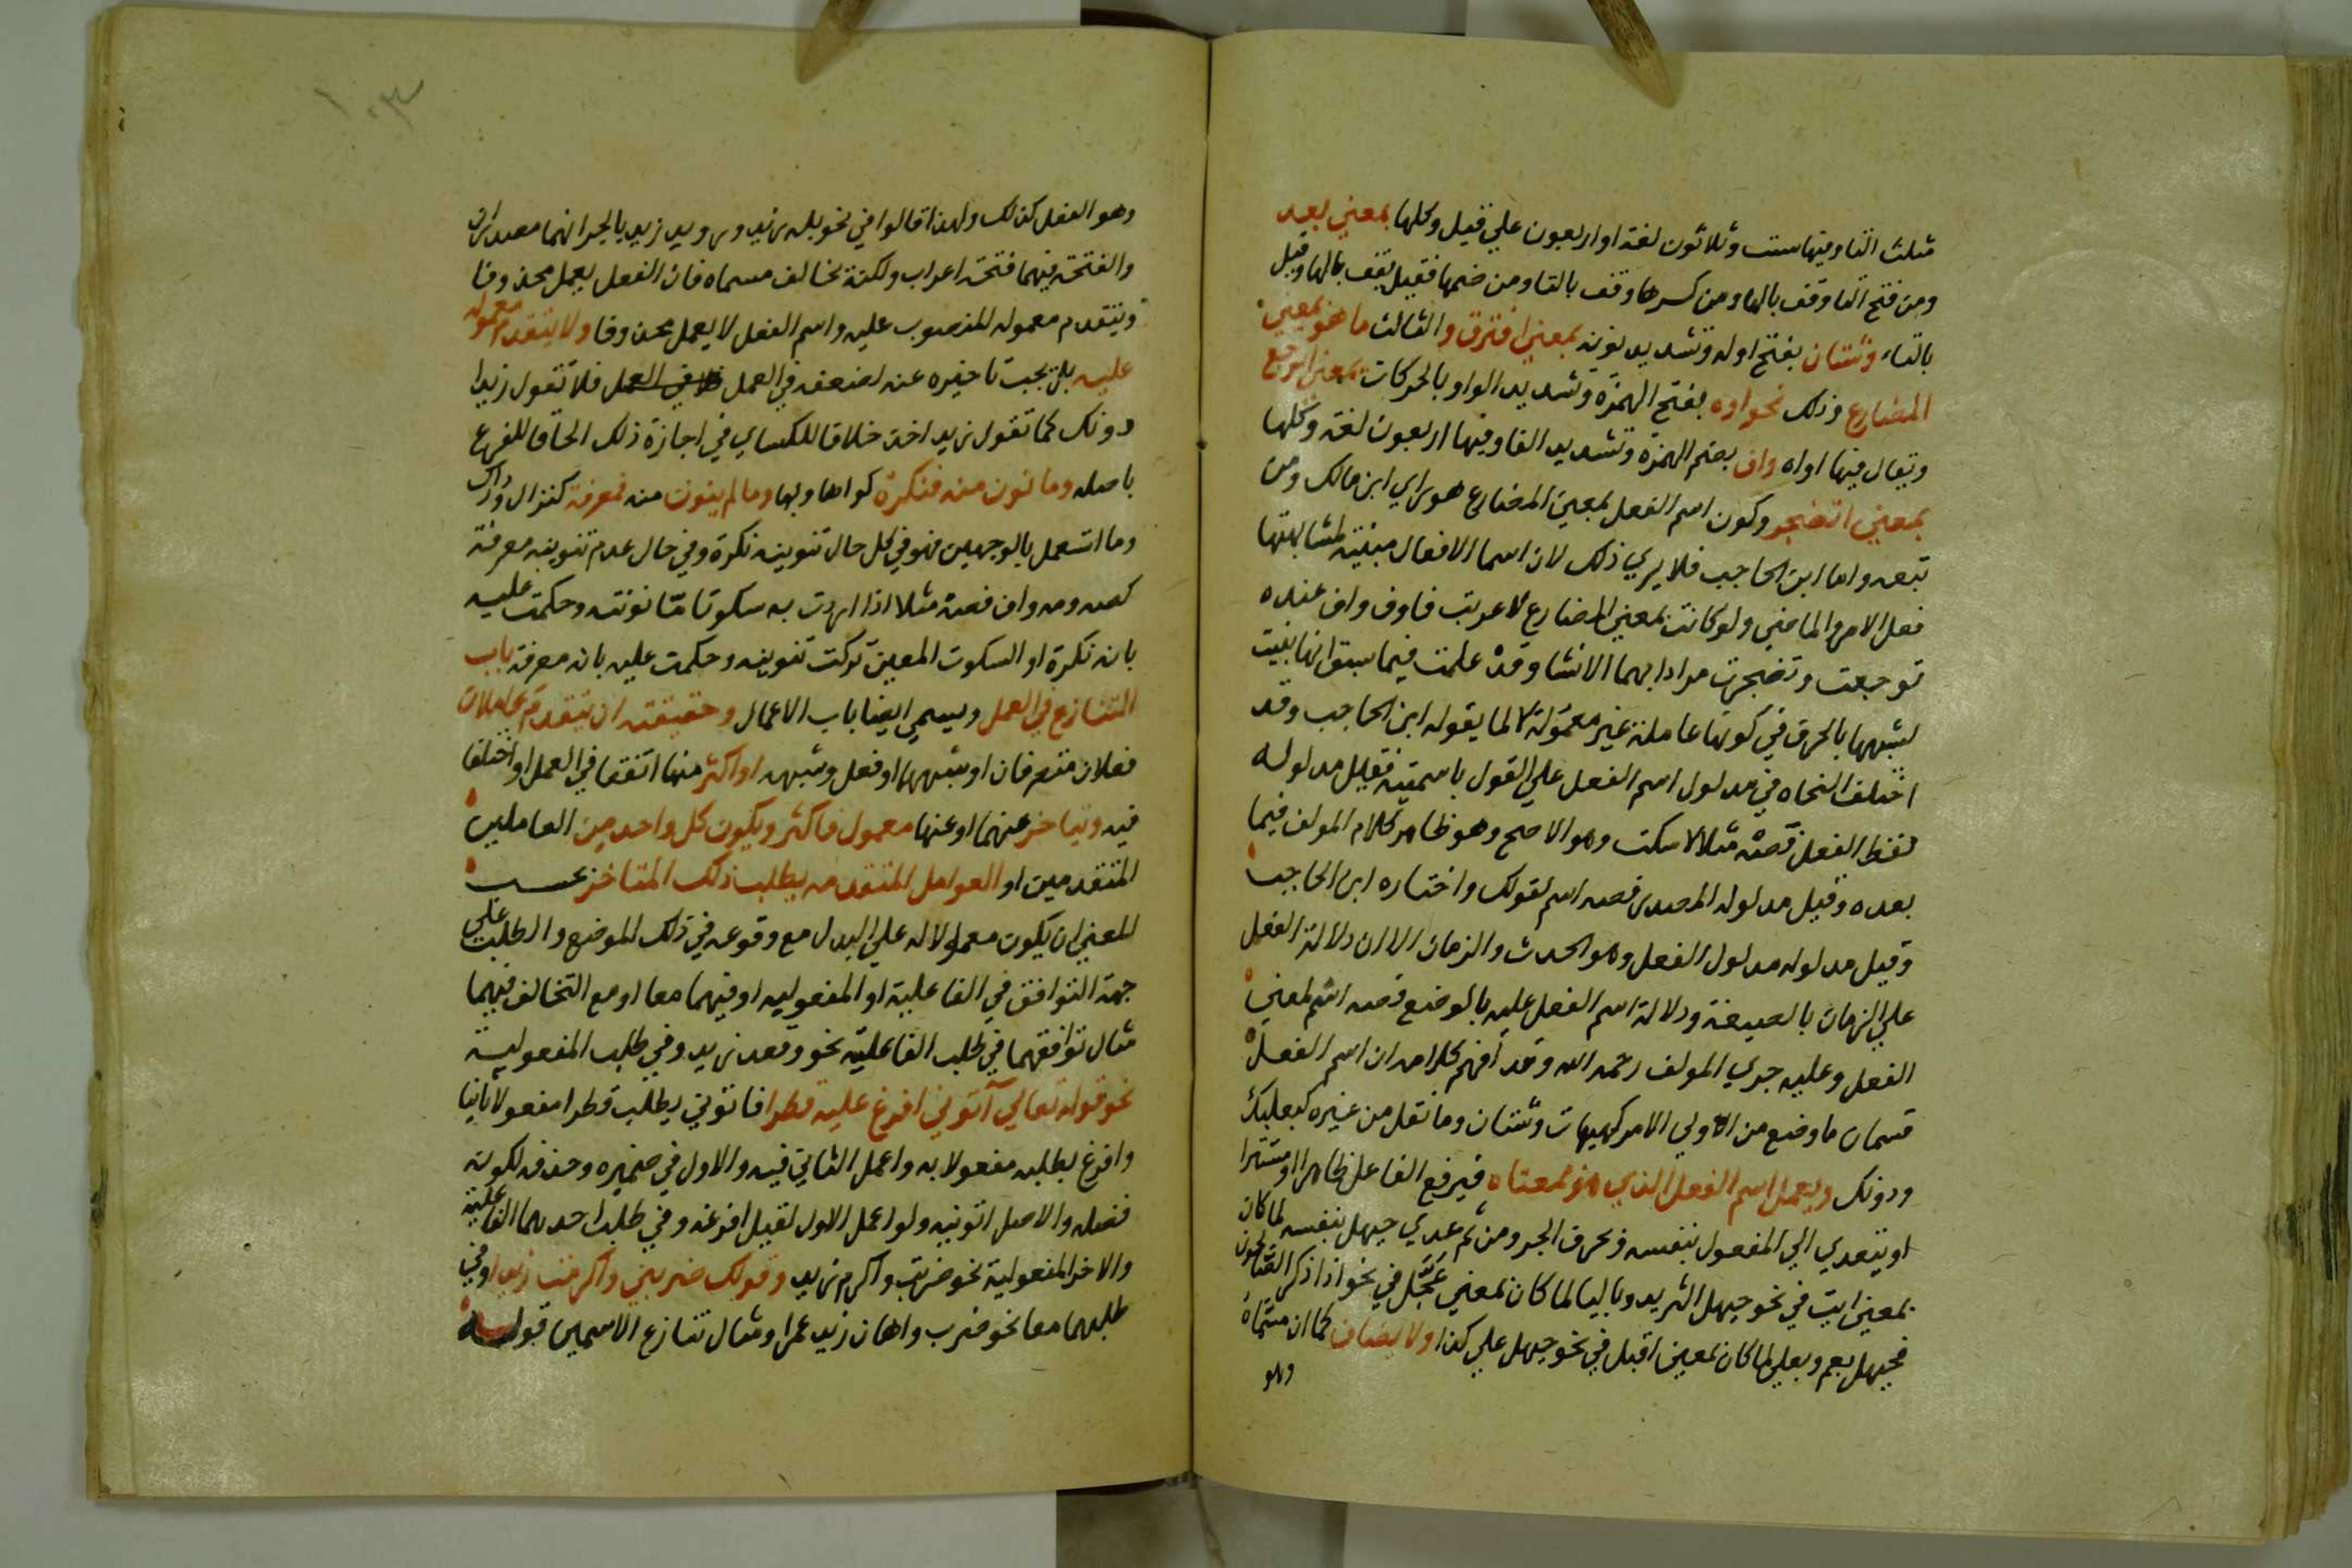 مثلث التا وفيها ست وثلاثون لغة او اربعون علي قيل وكلها بمعني بعد
ومن فتح التا وقف بالها ومن كسرها وقف بالتا ومن ضمها فقيل يقف بالها وقيل
بالتاء وشتان بفتح اوله وتشديد نونه بمعني افترق والثالث ما هو بمعني
المضارع وذلك نحو اوه بفتح الهمزة وتشديد الواو بالحركات بمعني اتوجع
ويقال فيها اواه واف بضم الهمزة وتشديد الفا وفيها اربعون لغة وكلها
بمعني اتضجر وكون اسم الفعل بمعني المضارع هو راي ابن مالك ومن
تبعه واما ابن الحاجب فلا يري ذلك لان اسما الافعال مبنية لمشابهتها
فعل الامر والماضي ولو كانت بمعني المضارع لاعربت فاوه واف عنده
توجعت وتضجرت مرادا بهما الانشا وقد علمت فيما سبق انها بنيت
لشبهها بالحرف في كونها عاملة غير معمولة لا لما يقوله ابن الحاجب وقد
اختلف النحاه في مدلول اسم الفعل علي القول باسميته فقيل مدلوله
لفظ الفعل فصه مثلا لاسكت وهو الاصح وهو ظاهر كلام المولف فيما
بعده وقيل مدلوله المصدر فصه اسم لقولك واختاره ابن الحاجب
وقيل مدلوله مدلول الفعل وهو الحدث والزمان الا ان دلالة الفعل
علي الزمان بالصيغة ودلالة اسم الفعل عليه بالوضع فصه اسم لمعني
الفعل وعليه جري المولف رحمه الله وقد افهم كلامه ان اسم الفعل
قسمان ما وضع من الاولي الامر كهيهات وشتان وما نقل من غيره كعليك
ودونك ويعمل اسم الفعل الذي هو بمعناه فيرفع الفاعل ظاهرا او مستترا
او يتعدي الي المفعول بنفسه وبحرف الجر ومن ثم عدي حيهل بنفسه لما كان
بمعني ايت في نحو حيهل الثريد وبالبا لما كان بمعني عجل في نحو اذا ذكر الصالحون
فحيهل بعمر وبعلي لما كان بمعني اقبل في نحو حيهل علي كذا ولا يضاف كما ان مسماه
وهو
وهو الفعل كذلك ولهذا قالوا في نحو بله زيد ورويد زيد بالجر انهما مصدران
والفتحة فيهما فتحة اعراب ولكنه يخالف مسماه فان الفعل يعمل محذوفا
ويتقدم معموله المنصوب عليه واسم الفعل لا يعمل محذوفا ولا يتقدم معموله
عليه بل يجب تاخيره عنه لضعفه في العمل في العمل فلا تقول زيدا
دونك كما تقول زيد اخذ خلافا للكساي في اجازة ذلك الحاقا للفرع
باصله وما نون منه فنكرة كواها وبها وما لم ينون منه فمعرفة كنزال ودراك
وما استعمل بالوجهين فهو في كل حال تنوينه نكرة وفي حال عدم تنوينه معرفة
كصه ومه واف فصه مثلا اذا اردت به سكوتا مّا نونته وحكمت عليه
بانه نكرة او السكوت المعين تركت تنوينه وحكمت عليه بانه معرفة باب
التنازع في العمل ويسمي ايضا باب الاعمال وحقيقته ان يتقدم عاملان
فعلان متصرفان او شبههما او فعل وشبهه او اكثر منها اتفقا في العمل او اختلفا
فيه ويتاخر عنهما او عنها معمول فاكثر ويكون كل واحد من العاملين
المتقدمين او العوامل المتقدمه يطلب ذلك المتاخر بحسب
المعني ان يكون معمولا له علي البدل مع وقوعه في ذلك الموضع والطلب علي
جهة التوافق في الفاعلية او المفعوليه او فيهما معا او مع التخالف فيهما
مثال توافقهما في طلب الفاعلية نحو وقعد زيد وفي طلب المفعولية
نحو قوله تعالي آتوني افرغ عليه قطرا فاتوني يطلب قطرا مفعولا ثانيا
وافرغ يطلبه مفعولا به واعمل الثاني فيه والاول في ضميره وحذف لكونه
فضله والاصل اتونيه ولو اعمل الاول لقيل افرغه وفي طلب احدهما الفاعلية
والاخر المفعولية نحو ضربت واكرم زيد وقولك ضربني واكرمت زيدا وفي
طلبهما معا نحو ضرب واهان زيد عمرا ومثال تنازع الاسمين قوله